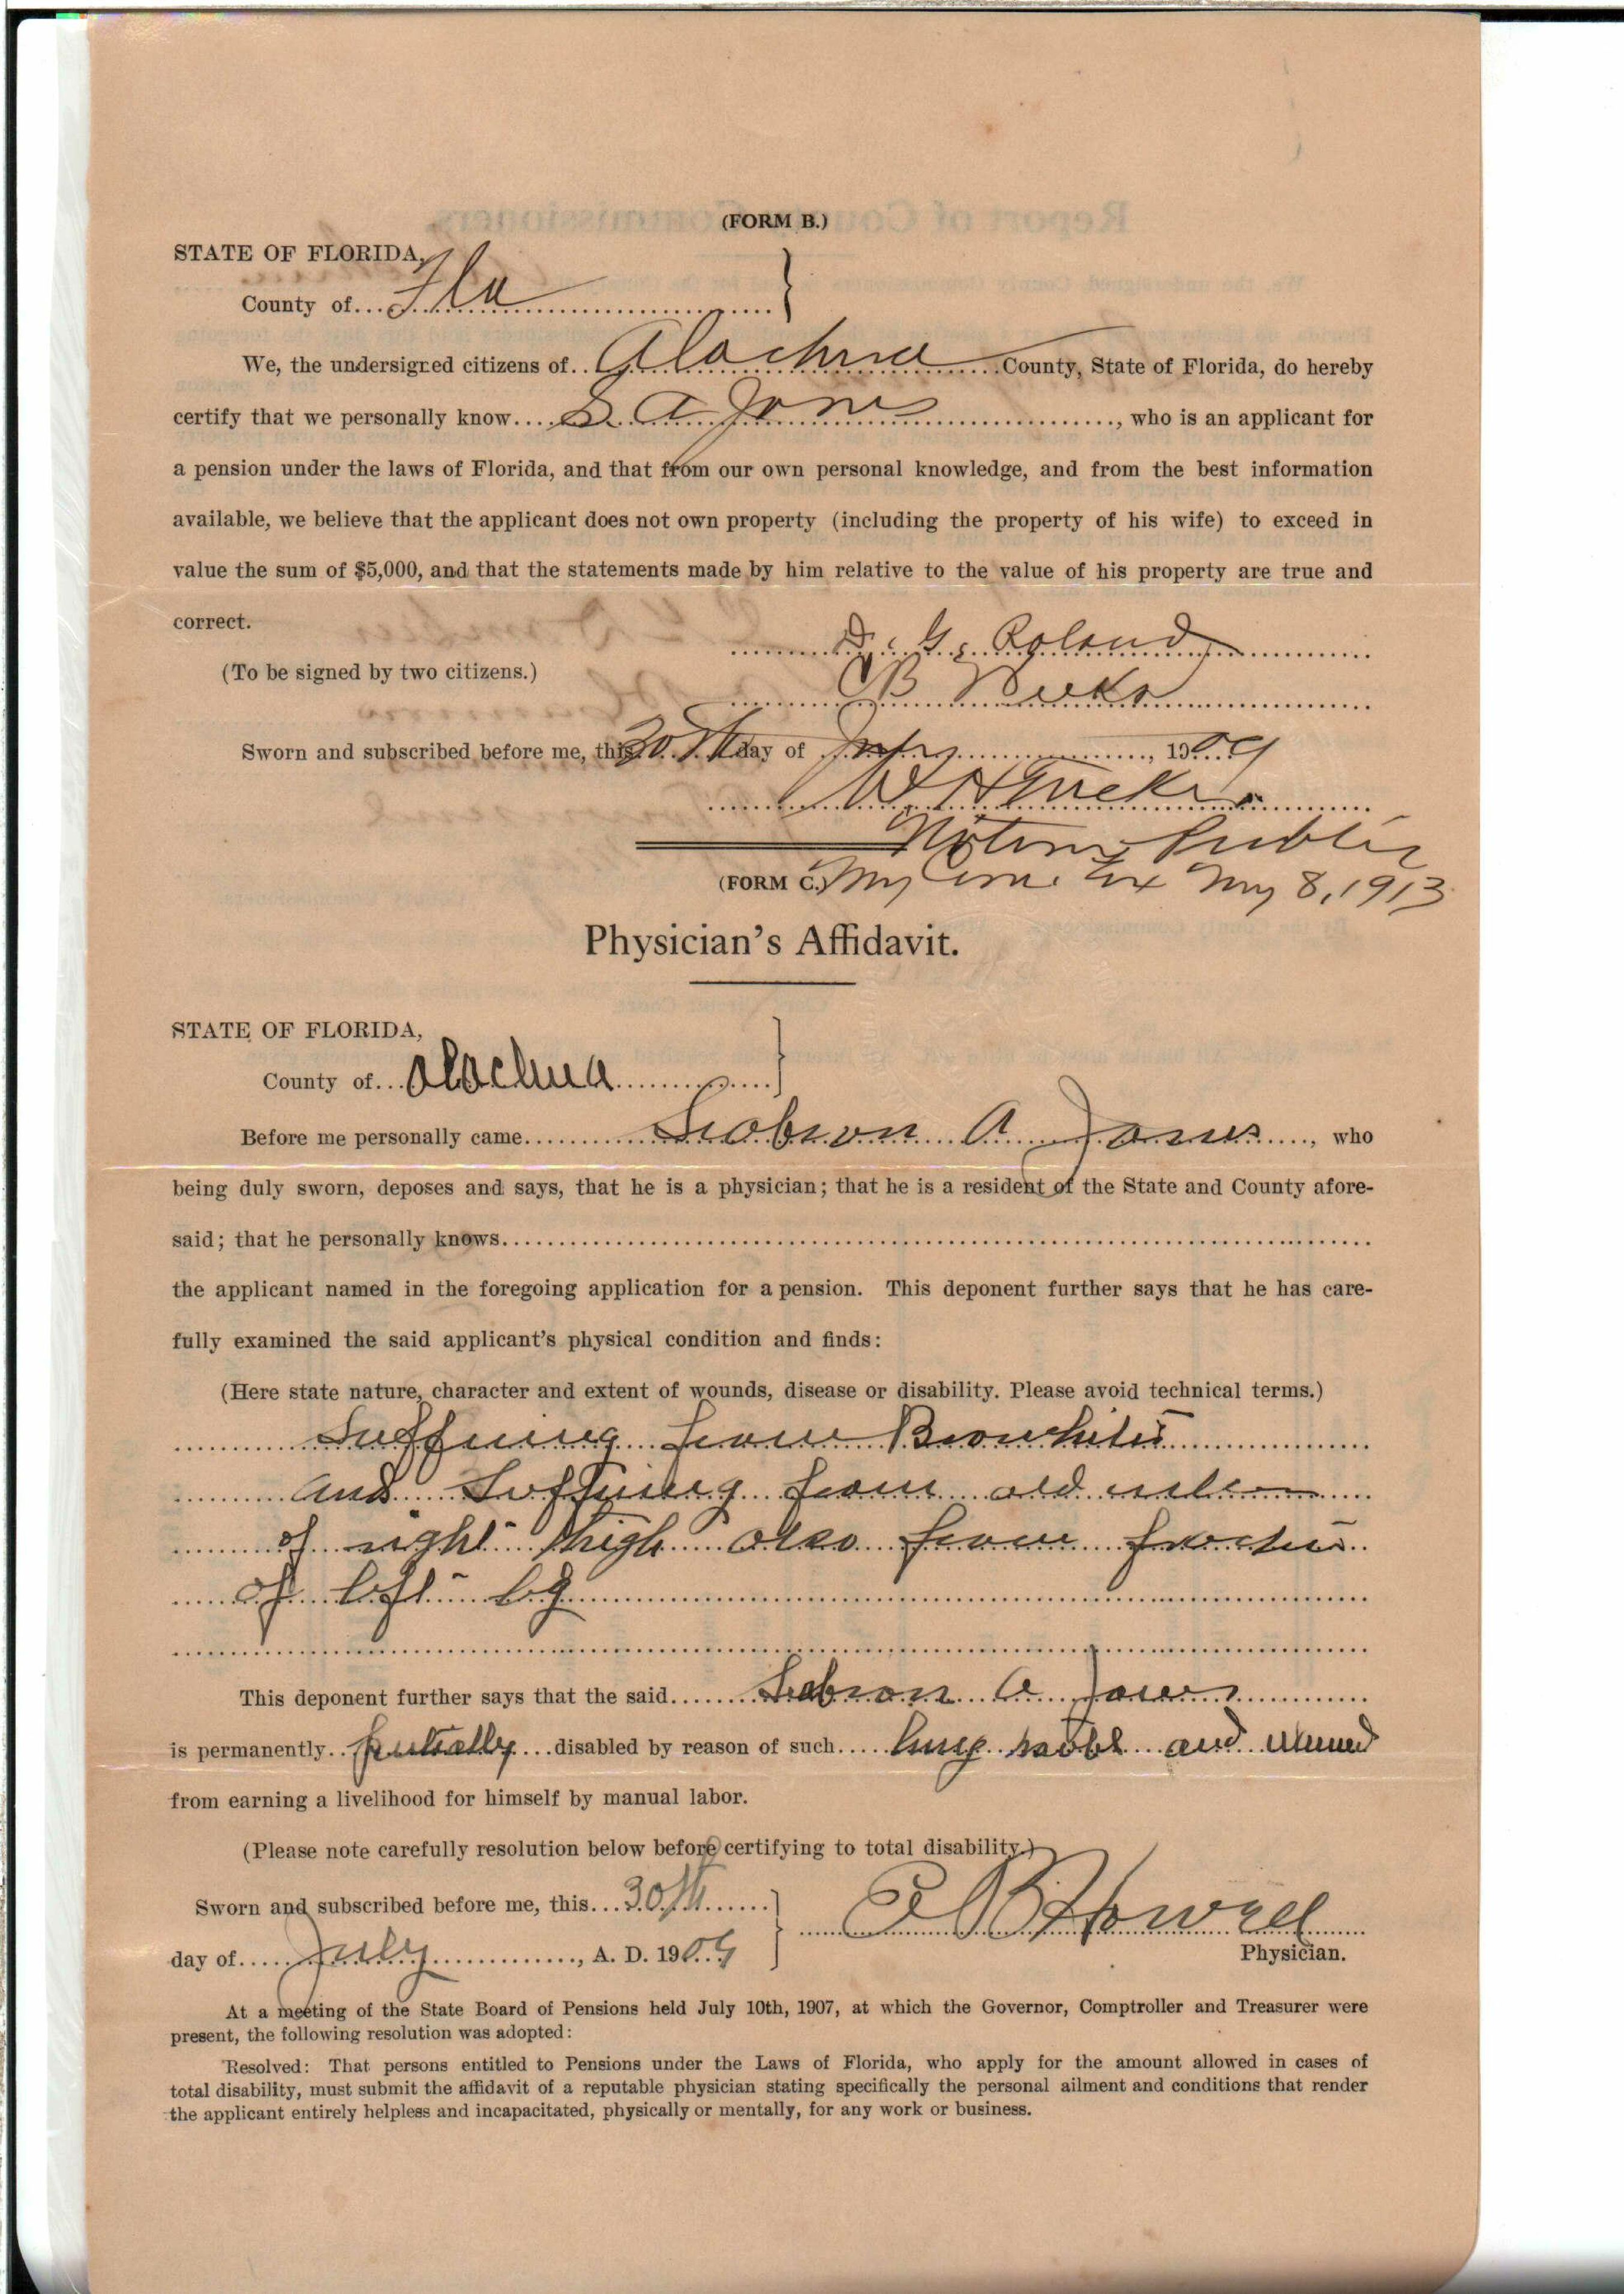 (FORM B.)
STATE OF FLORIDA,
County of Fla
We, the undersigned citizens of Alachua County, State of Florida, do hereby
certify that we personally know S. A Jones, who is an applicant for
a pension under the laws of Florida, and that from our own personal knowledge, and from the best information
available, we believe that the applicant does not own property (including the property of his wife) to exceed in
value the sum of $5,000, and that the statements made by him relative to the value of his property are true and
correct.
D. G. Roland
(To be signed by two citizens.)
C B
Sworn and subscribed before me, this 30th day of July, 1909
W H
Notary Public
(FORM C.) My Com. Ex May 8, 1913
Physician's Affidavit.
STATE OF FLORIDA,
County of Alachua
Before me personally came Seabron A Jones, who
being duly sworn, deposes and says, that he is a physician; that he is a resident of the State and County afore-
said; that he personally knows
the applicant named in the foregoing application for a pension. This deponent further says that he has care-
fully examined the said applicant's physical condition and finds:
(Here state nature, character and extent of wounds, disease or disability. Please avoid technical terms.)
Suffering from Bronchitis
and Suffering from old ulcer
of right thigh also from fractur
of left leg
This deponent further says that the said Seabron A Jones
is permanently partially disabled by reason of such lung trouble and wound
from earning a livelihood for himself by manual labor.
(Please note carefully resolution below before certifying to total disability.)
Sworn and subscribed before me, this 30th
Howell
day of July, A. D. 1909
Physician.
At a meeting of the State Board of Pensions held July 10th, 1907, at which the Governor, Comptroller and Treasurer were
present, the following resolution was adopted:
Resolved: That persons entitled to Pensions under the Laws of Florida, who apply for the amount allowed in cases of
total disability, must submit the affidavit of a reputable physician stating specifically the personal ailment and conditions that render
the applicant entirely helpless and incapacitated, physically or mentally, for any work or business.